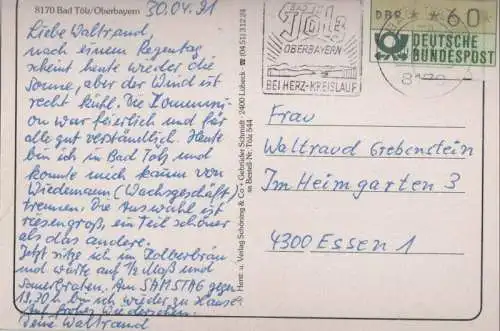 8170 Bad Tölz/Oberbayern
30.04.91
Liebe Waltraud,
nach einem Regentag
scheint heute wieder die
Sonne, aber der Wind ist
recht kühl. Die Kommuni-
on war feierlich und für
alle gut verständlich. Heute
bin ich in Bad Tölz und
konnte mich kaum von
Wiedemann (Wachsgeschäft)
trennen. Die Auswahl ist
riesengroß, ein Teil schöner
als das andere.
Jetzt sitze ich im Kolberbräu
und warte auf 1/2 Maß und
Sauerbraten. Am SAMSTAG gegen
13,30 h bin ich wieder zu Hause.
Auf frohes Wiedersehen.
Deine Waltraud
Herst. u. Verlag Schöning & Co + Gebrüder Schmidt · 2400 Lübeck · ☎ (04 51) 3 12 24
Bestell-Nr. Tölz 544
BAD
Tölz
OBERBAYERN
BEI HERZ-KREISLAUF
DBP ** 60
DEUTSCHE
BUNDESPOST
Frau
Waltraud Grebenstein
Im Heimgarten 3
4300 ESSEN 1